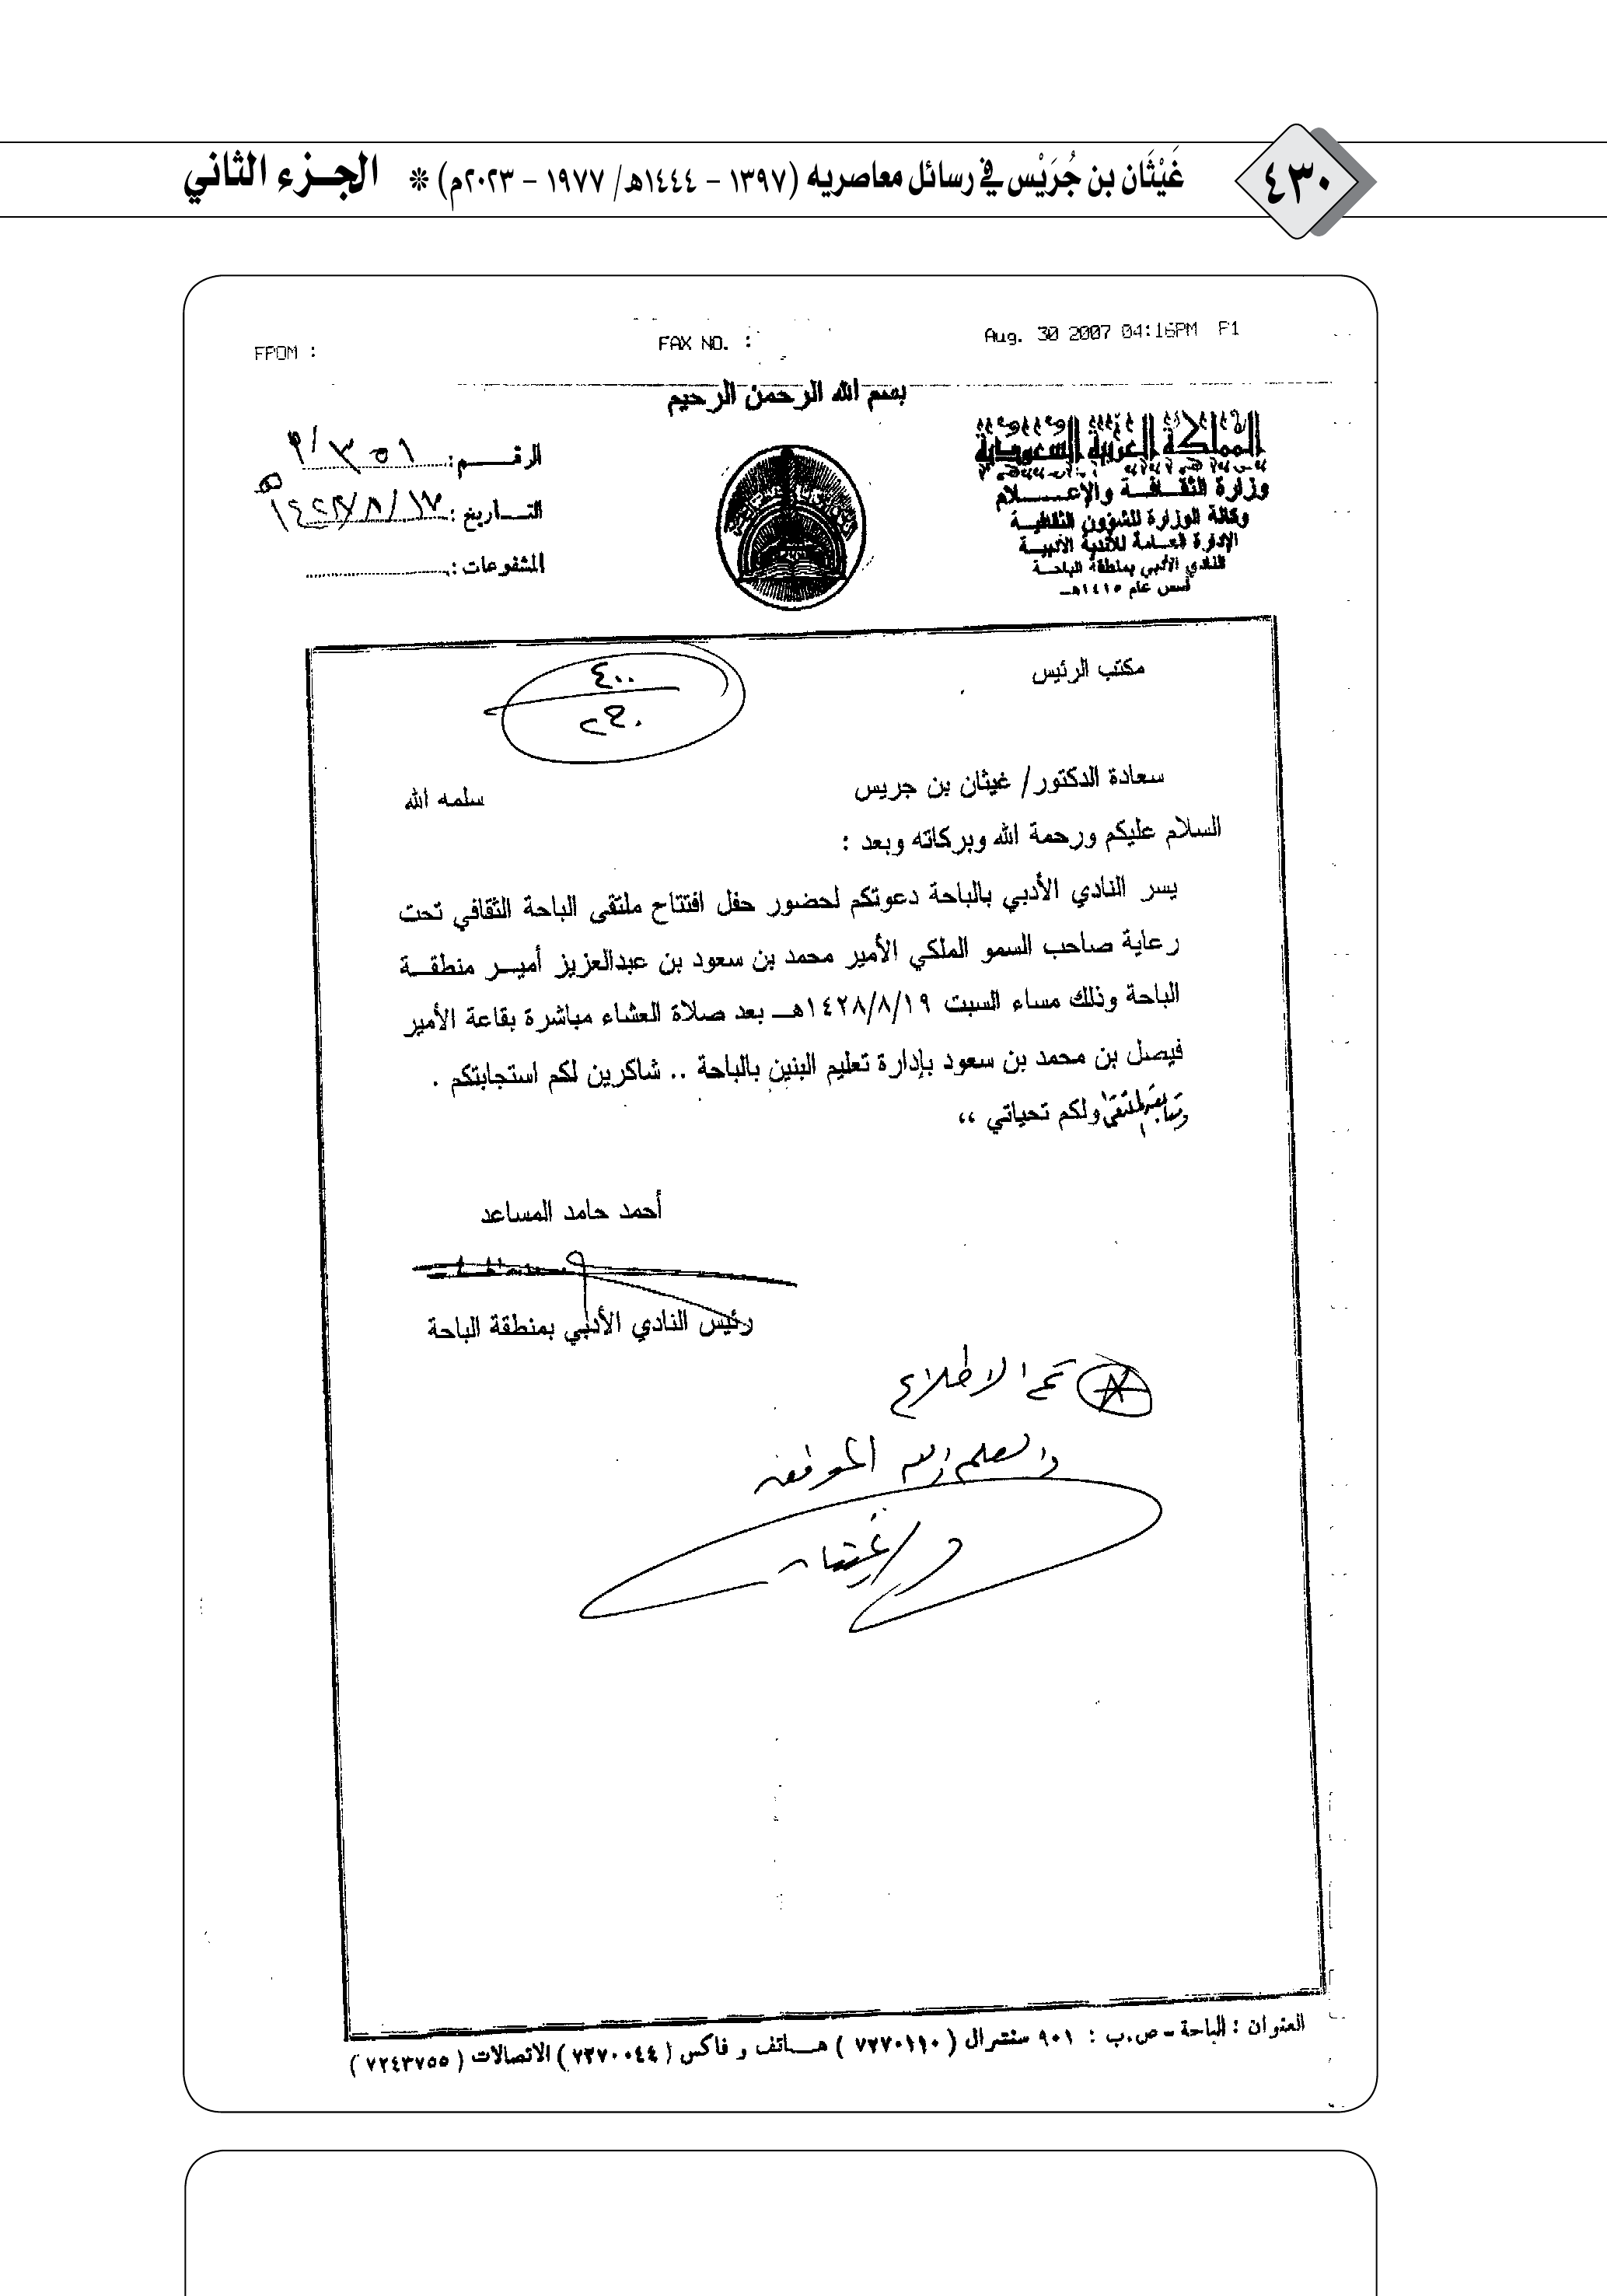 ٤٣٠
غَيْثَان بن جُرَيْس في رسائل معاصريه (١٣٩٧ – ١٤٤٤هـ/ ١٩٧٧ – ٢٠٢٣م) * الجزء الثاني
Aug. 30 2007 04:16PM P1
FAX NO. :
FROM :
بسم الله الرحمن الرحيم
المملكة العربية السعودية
وزارة الثقافة والإعلام
وكالة الوزارة للشؤون الثقافية
الإدارة العامة للأندية الأدبية
النادي الأدبي بمنطقة الباحة
أسس عام ١٤١٥هـ
الرقم :
التاريخ : ١٤٢٨/٨/١٧هـ
المشفوعات :
مكتب الرئيس
٤٠٠
سعادة الدكتور/ غيثان بن جريس سلمه الله
السلام عليكم ورحمة الله وبركاته وبعد :
يسر النادي الأدبي بالباحة دعوتكم لحضور حفل افتتاح ملتقى الباحة الثقافي تحت
رعاية صاحب السمو الملكي الأمير محمد بن سعود بن عبدالعزيز أمير منطقة
الباحة وذلك مساء السبت ١٤٢٨/٨/١٩هـ بعد صلاة العشاء مباشرة بقاعة الأمير
فيصل بن محمد بن سعود بإدارة تعليم البنين بالباحة .. شاكرين لكم استجابتكم .
ولكم تحياتي ،،
أحمد حامد المساعد
رئيس النادي الأدبي بمنطقة الباحة
تم الاطلاع
والله الموفق
د/ غيثان
العنوان : الباحة - ص.ب : ٩٠١ سنترال ( ٧٢٧٠١١٠ ) هاتف و فاكس ( ٧٢٧٠٠٤٤ ) الاتصالات ( ٧٢٤٣٧٥٥ )